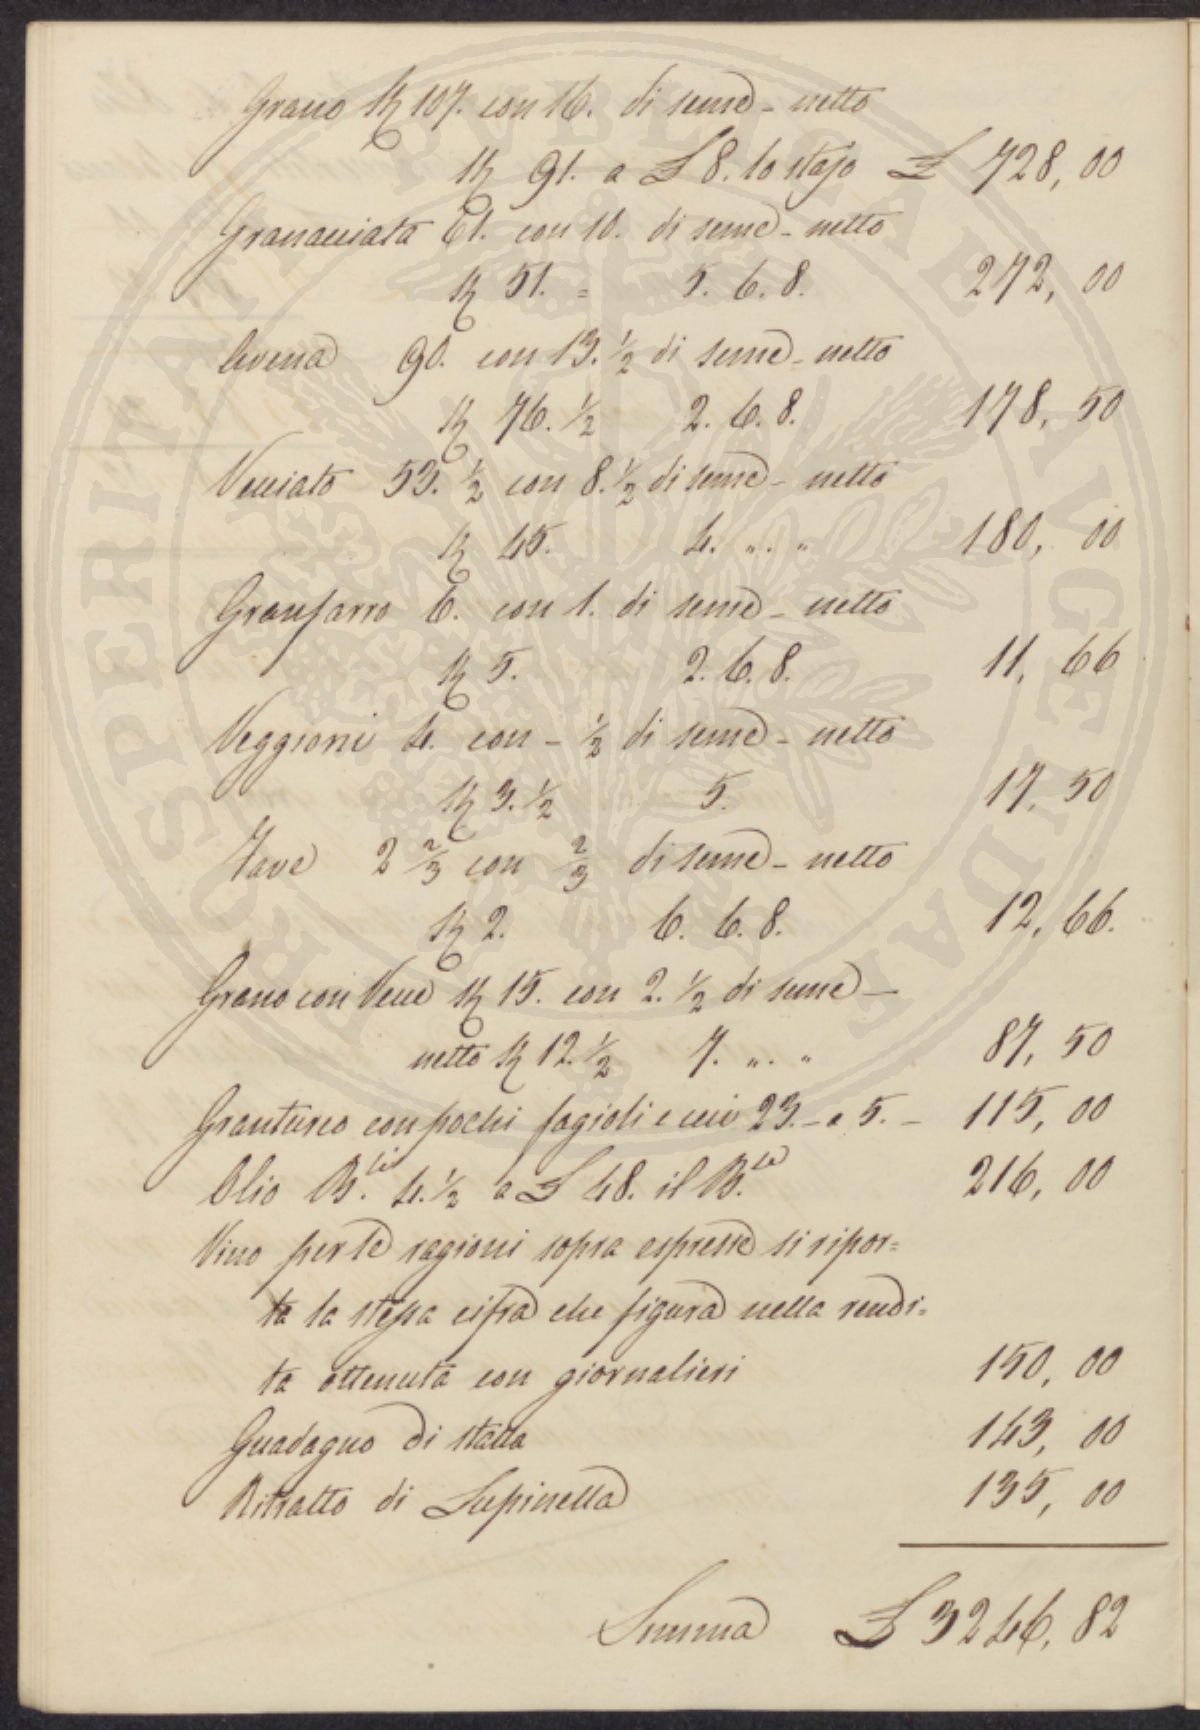 Grano St 107. con 16. di seme - netto
St 91. a £ 8. lo stajo £ 728, 00
Granacciata 61. con 10. di seme - netto
St 51. = 5. 6. 8. 272, 00
Avena 90. con 13. ½ di seme - netto
St 76. ½ 2. 6. 8. 178, 50
Vecciato 53. ½ con 8. ½ di seme - netto
St 45. 4. „. „ 180, 00
Granfarro 6. con 1. di seme - netto
St 5. 2. 6. 8. 11, 66
Veggioni 4. con - ½ di seme - netto
St 3. ½ 5. 17, 50
Fave 2 ⅔ con ⅔ di seme - netto
St 2. 6. 6. 8. 12, 66.
Grano con Vecce St 15. con 2. ½ di seme -
netto St 12. ½ 7. „. „ 87, 50
Granturco con pochi fagioli e ceci 23. - a 5. - 115, 00
Olio B.li 4. ½ a £ 48. il B.le 216, 00
Vino per le ragioni sopra espresse si ripor=
ta la stessa cifra che figura nella rendi=
ta ottenuta con giornalieri 150, 00
Guadagno di stalla 143, 00
Ritratto di Lupinella 135, 00
Somma £ 3246, 82
PROSPERITATI PVBLICAE AVGENDAE